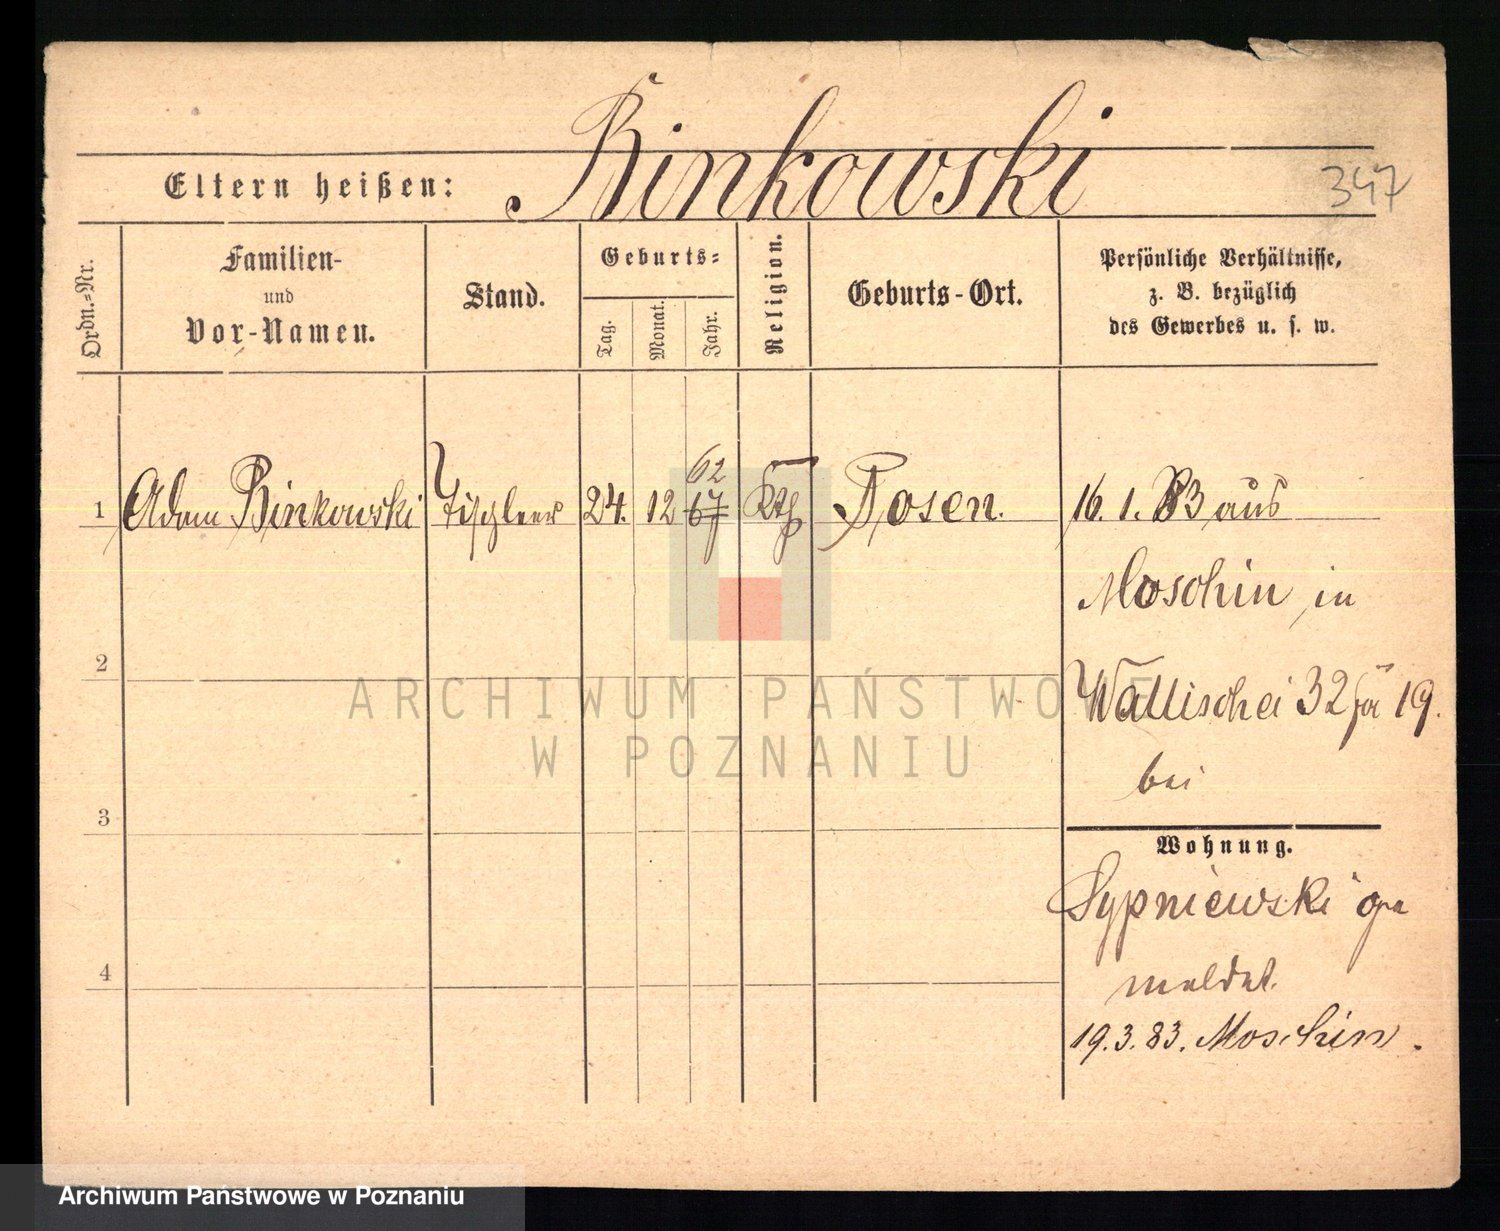 Binkowski
Eltern heißen:
347
Ordn.=Nr.
Familien-
und
Vor-Namen.
Stand.
Geburts=
Tag.
Monat.
Jahr.
Religion.
Geburts-Ort.
Persönliche Verhältnisse,
z. B. bezüglich
des Gewerbes u. s. w.
62
1 Adam Binkowski Tischler 24. 12 67 Kth Posen. 16. 1. 83 aus
Moschin in
2
Wallischei 32 19.
bei
3
Wohnung.
Sypniewski
4
meldet.
19.3.83. Moschin.
ARCHIWUM PAŃSTWOWE
W POZNANIU
Archiwum Państwowe w Poznaniu